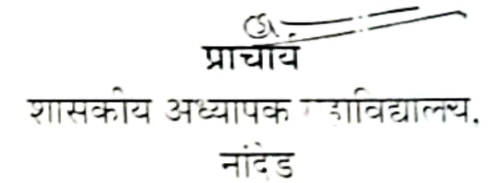 प्राचार्य
शासकीय अध्यापक महाविद्यालय,
नांदेड